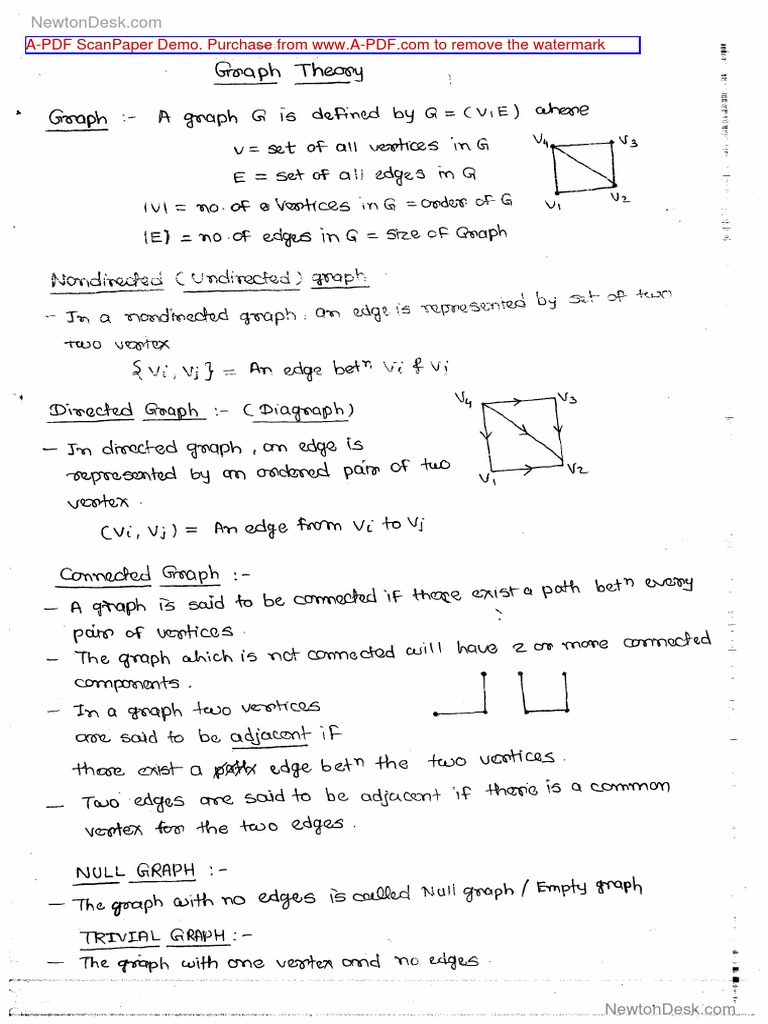 NewtonDesk.com
A-PDF ScanPaper Demo. Purchase from www.A-PDF.com to remove the watermark
Graph Theory
Graph :- A graph G is defined by G = (V, E) where
V = set of all vertices in G
E = set of all edges in G
|V| = no. of vertices in G = order of G
|E| = no. of edges in G = size of Graph
V4 V3
V1 V2
Nondirected (Undirected) graph
- In a nondirected graph, an edge is represented by set of
two vertex
{Vi, Vj} = An edge betn Vi & Vj
Directed Graph :- (Diagraph)
- In directed graph, an edge is
represented by an ordered pair of two
vertex.
(Vi, Vj) = An edge from Vi to Vj
V4 V3
V1 V2
Connected Graph :-
- A graph is said to be connected if there exist a path betn every
pair of vertices.
- The graph which is not connected will have 2 or more connected
components.
- In a graph two vertices
are said to be adjacent if
there exist a edge betn the two vertices.
- Two edges are said to be adjacent if there is a common
vertex for the two edges.
NULL GRAPH :-
- The graph with no edges is called Null graph / Empty graph
TRIVIAL GRAPH :-
- The graph with one vertex and no edges.
NewtonDesk.com